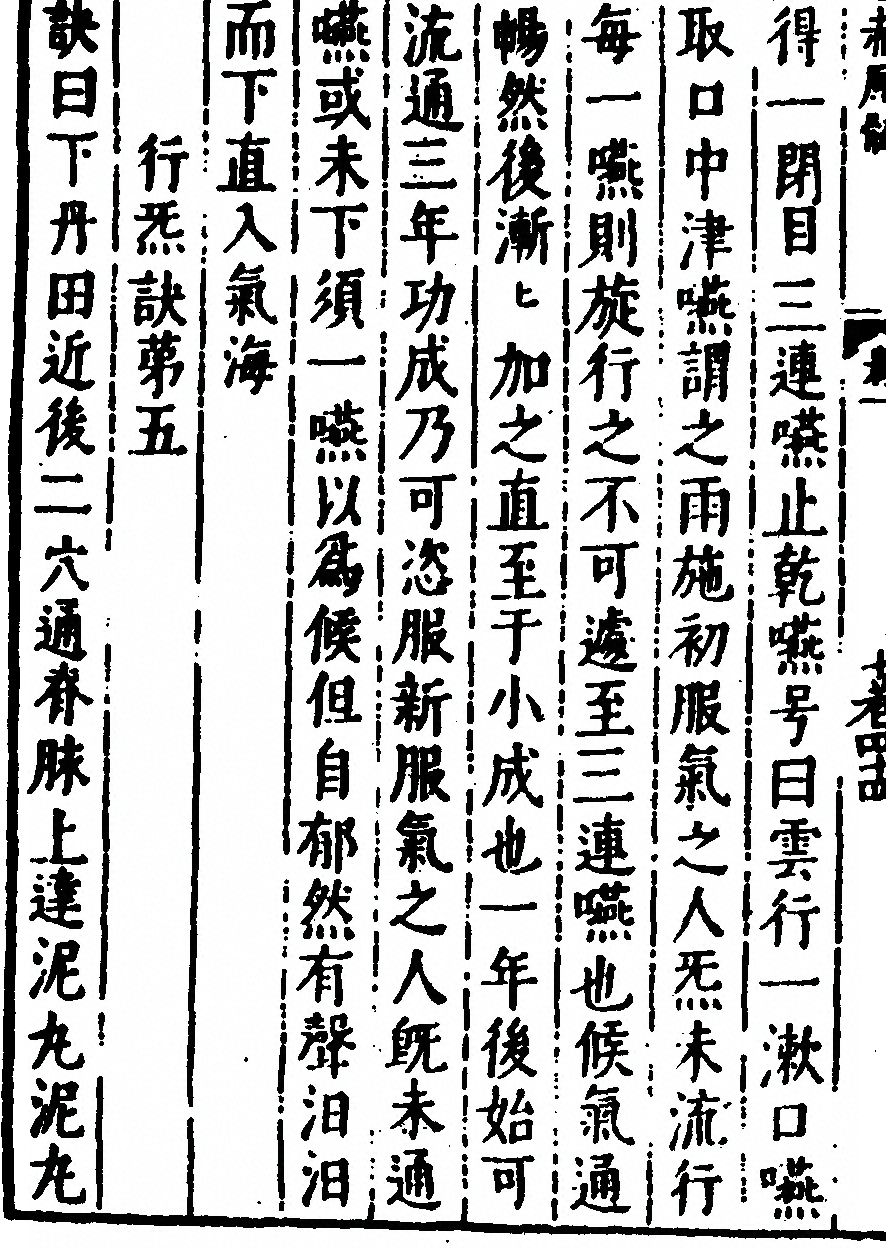 得一閉目三連嚥止乾嚥号曰雲行一漱口嚥
取口中津嚥謂之雨施初服氣之人炁未流行
每一嚥則旋行之不可遽至三連嚥也候氣通
暢然後漸〻加之直至于小成也一年後始可
流通三年功成乃可恣服新服氣之人既未通
嚥或未下須一嚥以爲候但自郁然有聲汩汩
而下直入氣海
行炁訣第五
訣曰下丹田近後二穴通脊脉上達泥丸泥丸